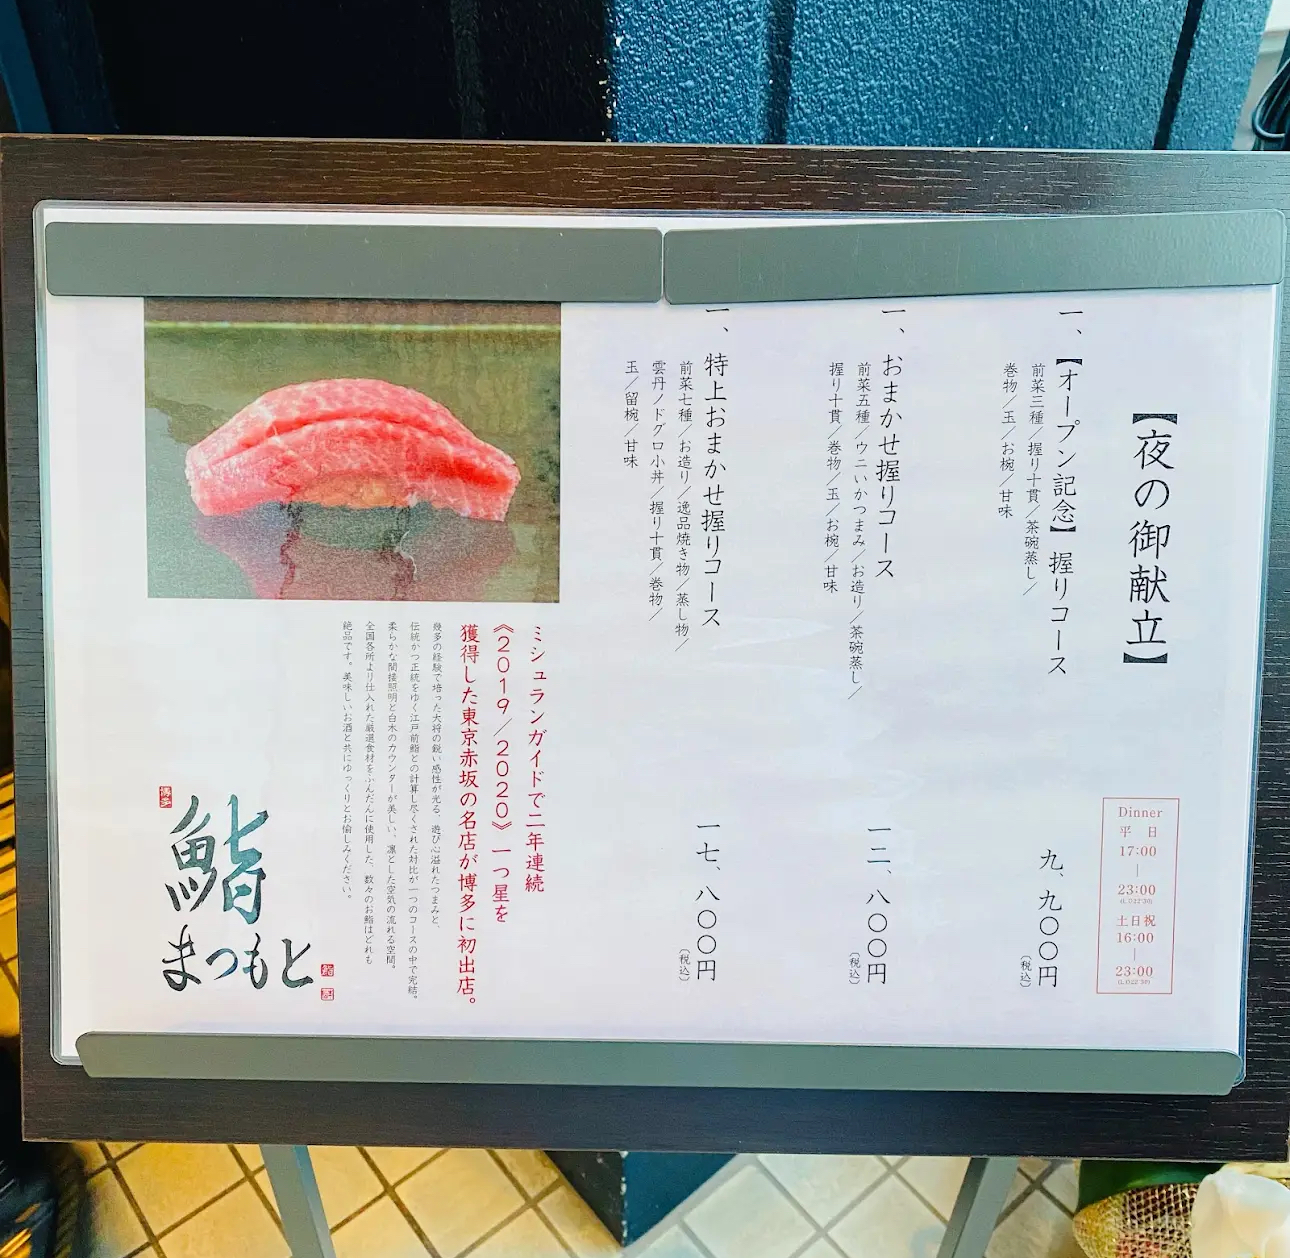 【夜の御献立】
Dinner
平 日
17:00
｜
23:00
土日祝
16:00
｜
23:00
一、【オープン記念】握りコース
前菜三種／握り十貫／茶碗蒸し／
巻物／玉／お椀／甘味
九、九〇〇円
(税込)
一、おまかせ握りコース
前菜五種／ウニいかつまみ／お造り／茶碗蒸し／
握り十貫／巻物／玉／お椀／甘味
一二、八〇〇円
(税込)
一、特上おまかせ握りコース
前菜七種／お造り／逸品焼き物／蒸し物／
雲丹ノドグロ小丼／握り十貫／巻物／
玉／留椀／甘味
一七、八〇〇円
(税込)
ミシュランガイドで二年連続
《2019／2020》一つ星を
獲得した東京赤坂の名店が博多に初出店。
幾多の経験で培った大将の鋭い感性が光る、遊び心溢れたつまみと、
伝統かつ正統をゆく江戸前鮨との計算し尽くされた対比が一つのコースの中で完結。
柔らかな間接照明と白木のカウンターが美しい、凛とした空気の流れる空間。
全国各所より仕入れた厳選食材をふんだんに使用した、数々のお鮨はどれも
絶品です。美味しいお酒と共にゆっくりとお愉しみください。
博多
鮨
まつもと